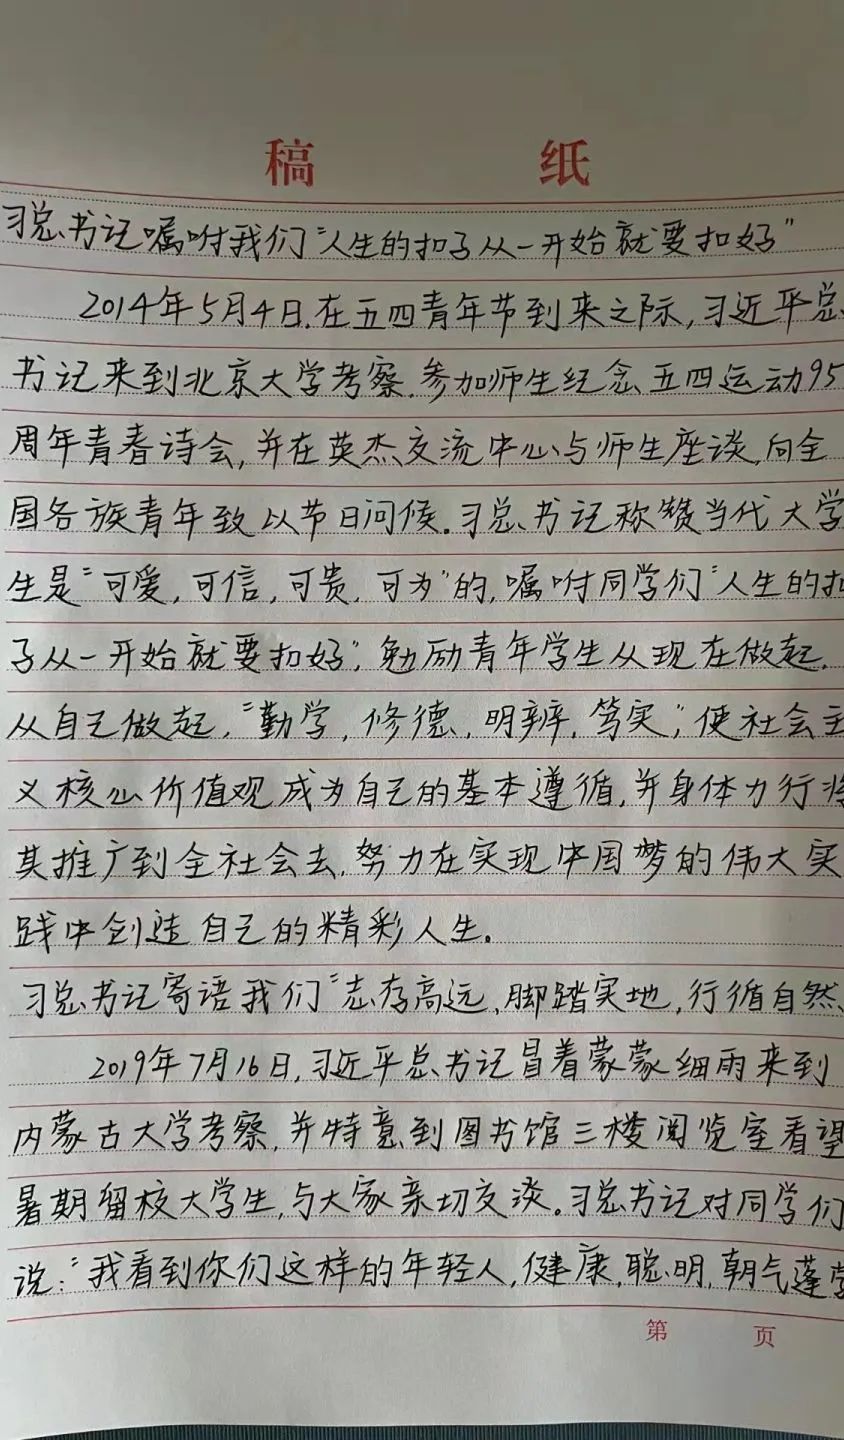 稿 纸
习总书记嘱咐我们“人生的扣子从一开始就要扣好”
2014年5月4日.在五四青年节到来之际,习近平总
书记来到北京大学考察.参加师生纪念五四运动95
周年青春诗会,并在英杰交流中心与师生座谈,向全
国各族青年致以节日问候.习总书记称赞当代大学
生是“可爱,可信,可贵,可为”的,嘱咐同学们“人生的扣
子从一开始就要扣好”,勉励青年学生从现在做起.
从自己做起,“勤学,修德,明辨,笃实”,使社会主
义核心价值观成为自己的基本遵循,并身体力行将
其推广到全社会去,努力在实现中国梦的伟大实
践中创造自己的精彩人生。
习总书记寄语我们“志存高远,脚踏实地,行循自然
2019年7月16日,习近平总书记冒着蒙蒙细雨来到
内蒙古大学考察,并特意到图书馆三楼阅览室看望
暑期留校大学生,与大家亲切交谈。习总书记对同学们
说:“我看到你们这样的年轻人,健康,聪明,朝气蓬
第 页